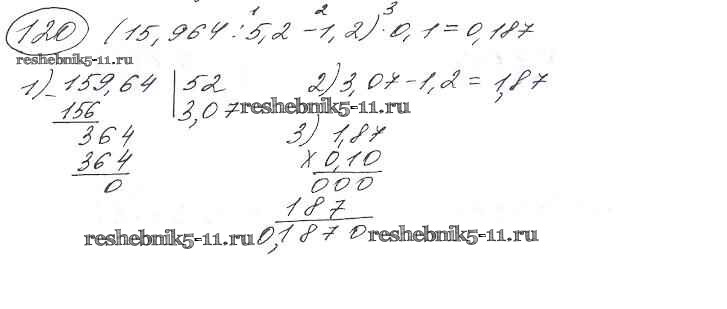 120 (15,964 : 5,2 - 1,2) · 0,1 = 0,187
1 2 3
reshebnik5-11.ru
1) 159,64 | 52 2) 3,07 - 1,2 = 1,87
- 156 3,07 reshebnik5-11.ru
364 3) 1,87
364 × 0,10
0 000
187
reshebnik5-11.ru 0,1870 reshebnik5-11.ru